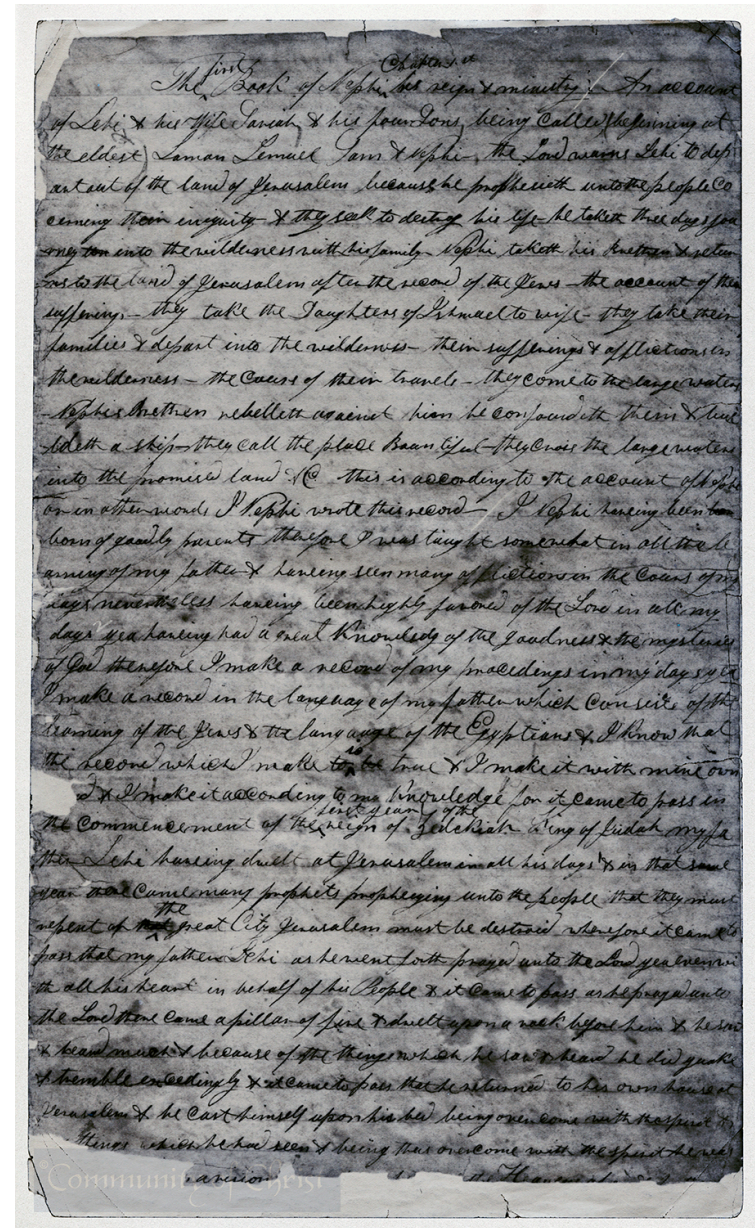 Chapter 1st
The first Book of Nephi his reign & ministry An account
of Lehi & his Wife Sariah & his four Sons being called (beginning at
the eldest) Laman Lemuel Sam & Nephi the Lord warns Lehi to dep
art out of the land of Jerusalem because he prophesieth unto the people Co
cerning their iniquity & they seek to destroy his life he taketh three days jou
rney into the wilderness with his family Nephi taketh his Brethren & retur
ns to the land of Jerusalem after the record of the Jews the account of their
sufferings they take the Daughters of Ishmael to wife they take their
families & depart into the wilderness their sufferings & afflictions in
the wilderness the Cours of their travels they come to the large waters
Nephis Brethren rebelleth against him he confoundeth them &
ildeth a ship they call the place Bountiful they cross the large waters
into the promised land &C this is according to the account of Nephi
or in other words I Nephi wrote this record I Nephi having been
born of goodly parents therefore I was taught somewhat in all the le
arning of my father & haveing seen many afflictions in the Cours of my
days nevertheless haveing been highly favored of the Lord in all my
days yea haveing had a great Knowledg of the goodness & the mysteries
of God therefore I make a record of my procedings in my days yea
I make a record in the language of my father which Consists of the
learning of the Jews & the language of the Egyptians & I know that
the record which I make to be true & I make it with mine own
d & I make it according to my Knowledge for it came to pass in
the commencement of the first year of the reign of Zedekiah King of Judah my fa
ther Lehi haveing dwelt at Jerusalem in all his days & in that same
year there Came many prophets prophesying unto the people that they must
repent or the great City Jerusalem must be destroid wherefore it came to
pass that my father Lehi as he went forth prayed unto the Lord yea even wi
th all his heart in behalf of his People & it Came to pass as he prayd unto
the Lord there came a pillar of fire & dwelt upon a rock before him & he saw
& heard much & because of the things which he saw & heard he did quake
& tremble excedingly & it came to pass that he returned to his own house at
Jerusalem & he Cast himself upon his bed being overcome with the spirit &
things which he had seen & being thus overcome with the spirit he was
a vision the Heavens
Community of Christ